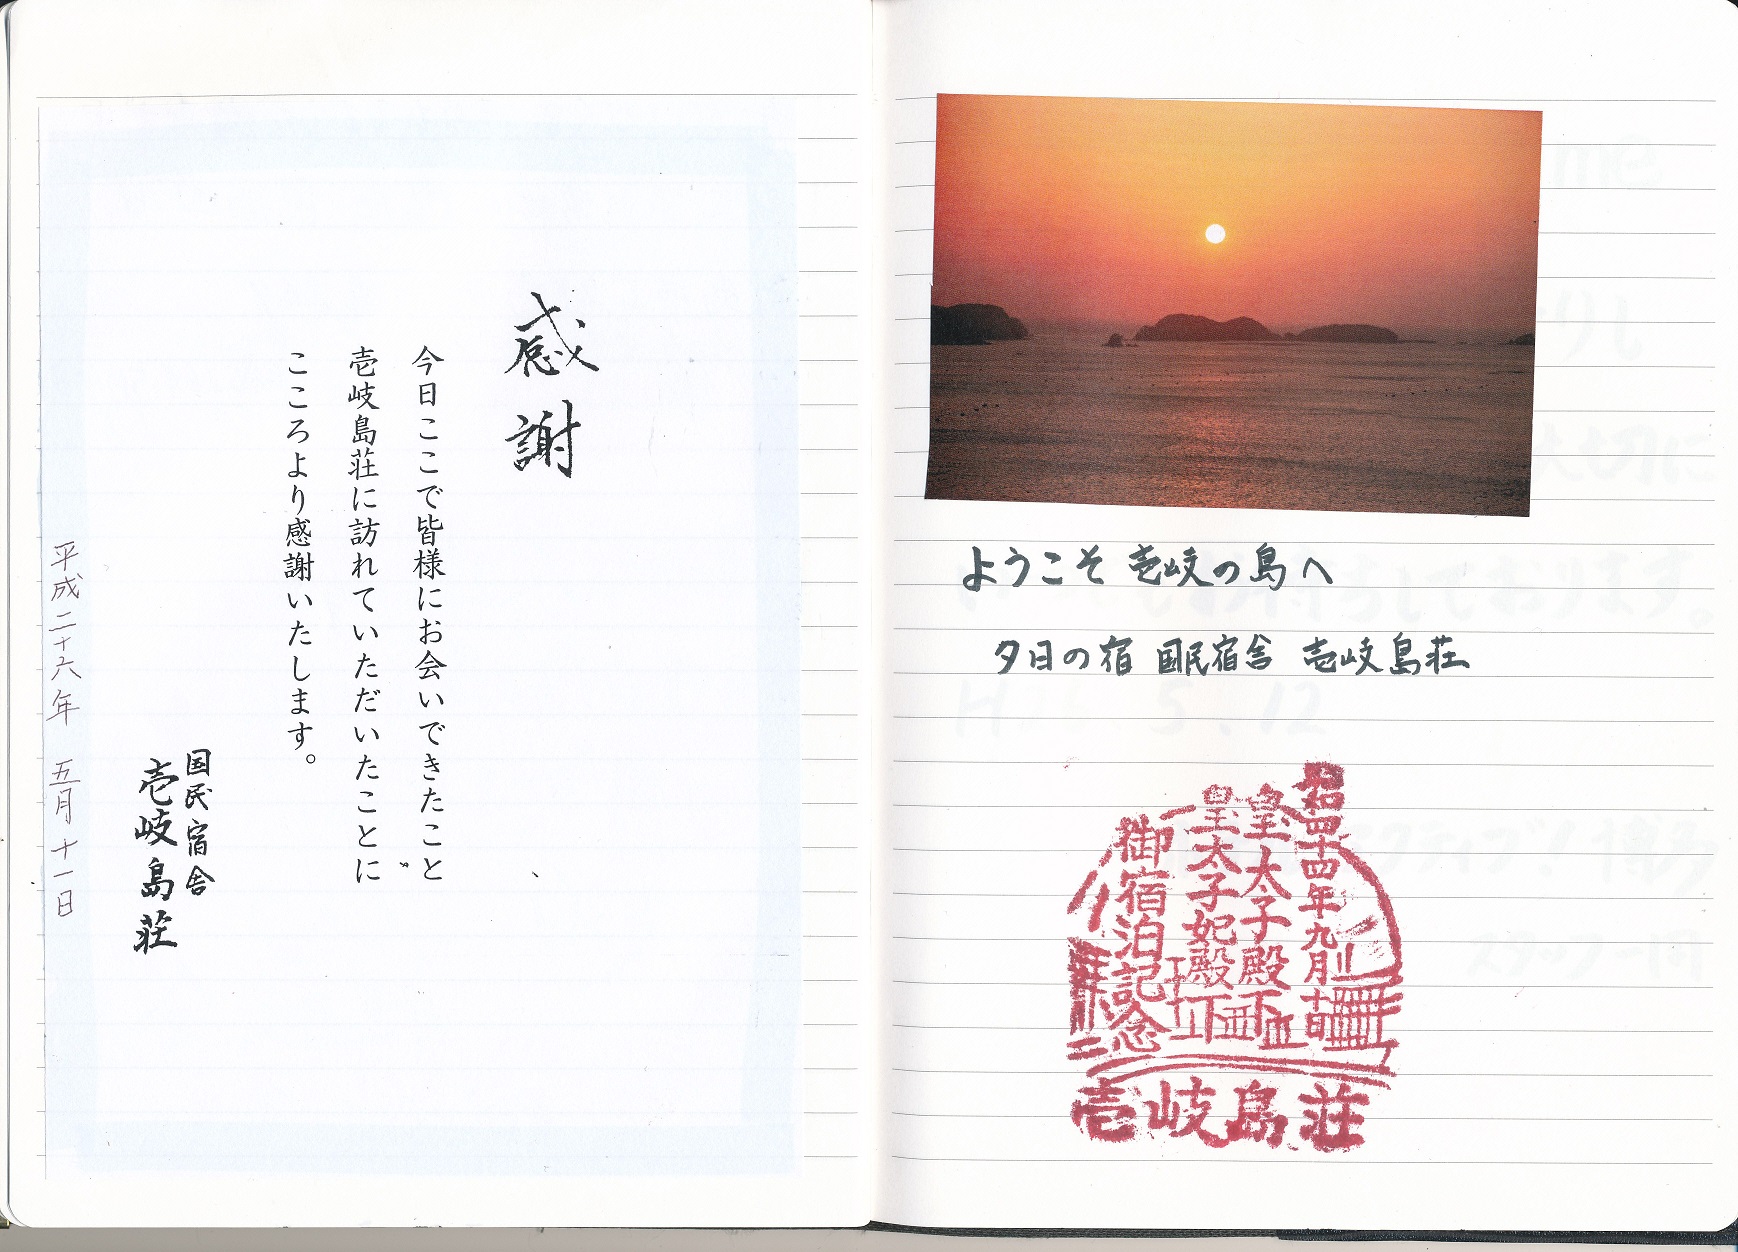 感謝
今日ここで皆様にお会いできたこと
壱岐島荘に訪れていただいたことに
こころより感謝いたします。
国民宿舎
壱岐島荘
平成二十六年 五月十一日
ようこそ 壱岐の島へ
夕日の宿 国民宿舎 壱岐島荘
昭四十四年九月十日
皇太子殿下
皇太子妃殿下
御宿泊記念
壱岐島荘